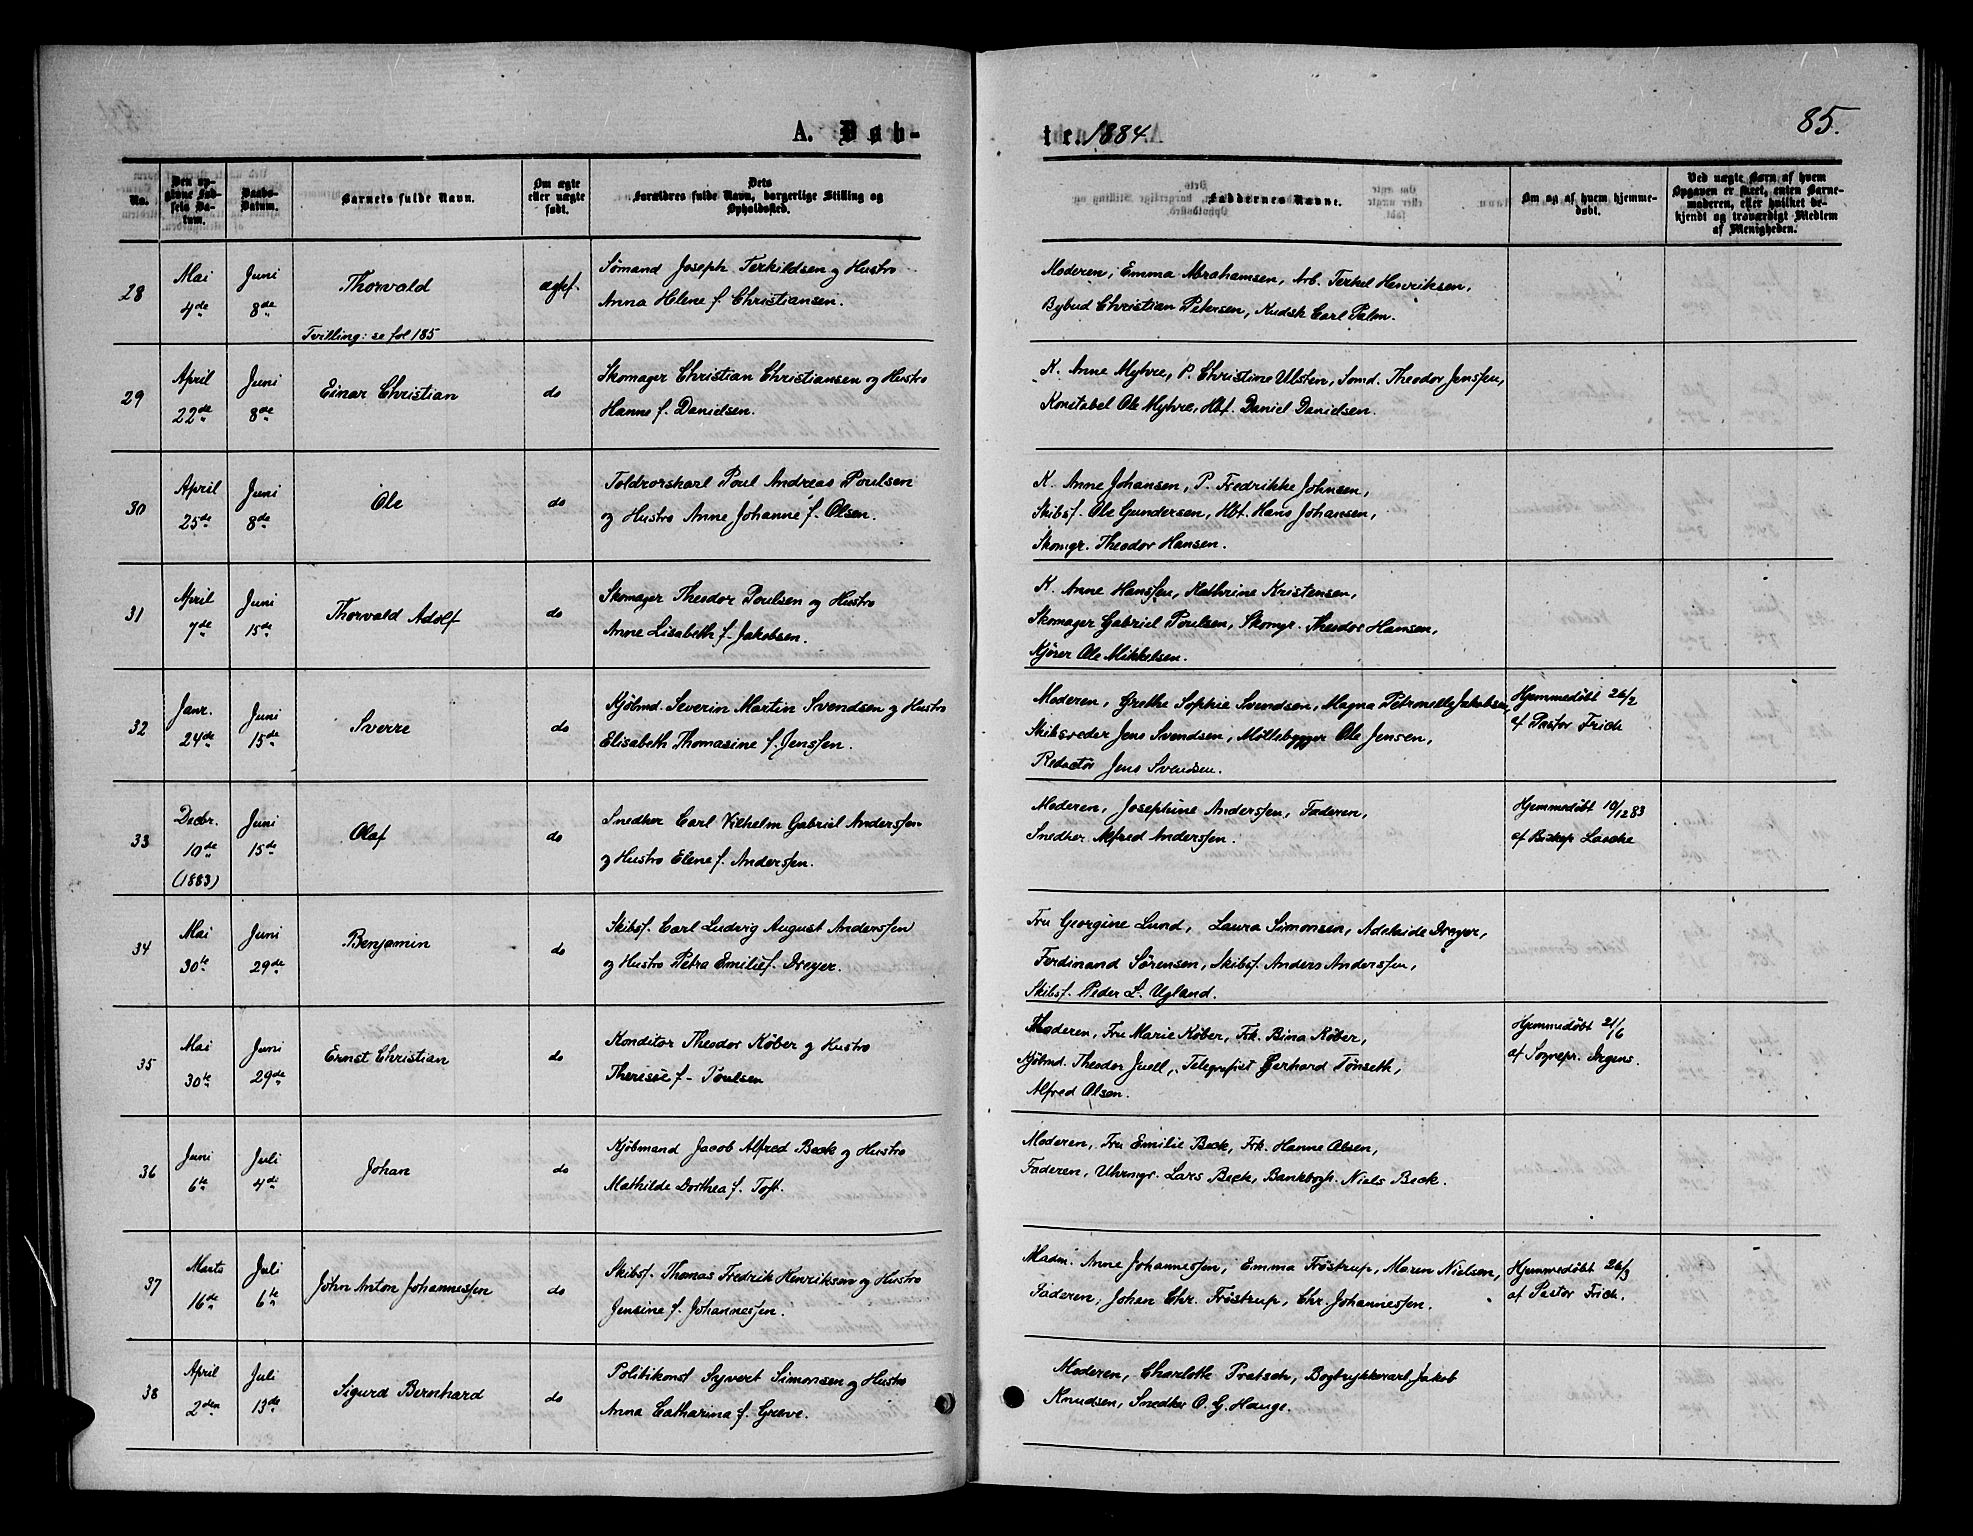 A. Døb-
te. 1884
85.
No.
Den opgivne Fødsels Datum.
Daabs-Datum.
Barnets fulde Navn.
Om ægte eller uægte født.
Dets Forældres fulde Navn, borgerlige Stilling og Opholdssted.
Faddernes Navne.
Om og af hvem hjemmedøbt.
Ved uægte Børn af hvem Opgaven er skeet, enten Barnemoderen, eller hvilket bekjendt og troværdigt Medlem af Menigheden.
28 Mai 4de Juni 8de Thorvald ægtef.
Tvilling: se fol 185
Sømand Joseph Terkildsen og Hustro
Anna Helene f. Christiansen.
Moderen, Emma Abrahamsen, Arb. Terkel Henriksen,
Bybud Christian Petersen, Kudsk Carl Palm.
29 April 22de Juni 8de Einar Christian do
Skomager Christian Christiansen og Hustro
Hanne f. Danielsen.
K. Anne Myhre, P. Christine Ulsten, Sømd. Theodor Jenssen,
Konstabel Ole Myhre, Hbt. Daniel Danielsen.
30 April 25de Juni 8de Ole do
Toldrorskarl Poul Andreas Poulsen
og Hustro Anne Johanne f. Olsen.
K. Anne Johansen, P. Fredrikke Johnsen,
Skibsf. Ole Gundersen, Hbt. Hans Johansen,
Skomgr. Theodor Hansen.
31 April 7de Juni 15de Thorvald Adolf do
Skomager Theodor Poulsen og Hustro
Anne Lisabeth f. Jakobsen.
K. Anne Hanssen, Kathrine Kristensen,
Skomager Gabriel Poulsen, Skomgr. Theodor Hansen,
Kjører Ole Mikkelsen.
32 Janr. 24de Juni 15de Sverre do
Kjøbmd. Severin Martin Svendsen og Hustro
Elisabeth Thomasine f. Jenssen.
Moderen, Grethe Sophie Svendsen, Magna Petronelle Jakobsen,
Skibsreder Jens Svendsen, Møllebygger Ole Jensen,
Redactør Jens Svendsen.
Hjemmedøbt 26/2
af Pastor Frich
33 Decbr. 10de (1883) Juni 15de Olaf do
Snedker Carl Vilhelm Gabriel Anderssen
og Hustro Elene f. Anderssen.
Moderen, Josephine Anderssen, Faderen,
Snedker Alfred Anderssen.
Hjemmedøbt 10/12 83
af Biskop Lasche
34 Mai 30te Juni 29de Benjamin do
Skibsf. Carl Ludvig August Anderssen
og Hustro Petra Emilie f. Dreyer.
Fru Georgine Lund, Laura Simonsen, Adelaide Dreyer,
Ferdinand Sørensen, Skibsf. Anders Anderssen,
Skibsf. Peder L. Ugland.
35 Mai 30te Juni 29de Ernst Christian do
Konditor Theodor Køber og Hustro
Therese f. Poulsen
Moderen, Fru Marie Køber, Frk. Bina Køber,
Kjøbmd. Theodor Juell, Telegrafist Gerhard Tønseth,
Alfred Olsen.
Hjemmedøbt 21/6
af Sognepr. Irgens.
36 Juni 6te Juli 4de Johan do
Kjøbmand Jacob Alfred Beck og Hustro
Mathilde Dorthea f. Toft.
Moderen, Fru Emilie Beck, Frk. Hanne Olsen,
Faderen, Uhrmgr. Lars Beck, Bankbogh. Niels Beck.
37 Marts 16de Juli 6te John Anton Johannessen do
Skibsf. Thomas Fredrik Henriksen og Hustro
Jensine f. Johannessen.
Madm. Anne Johannessen, Emma Frøstrup, Maren Nielsen,
Faderen, Johan Chr. Frøstrup, Chr. Johannessen.
Hjemmedøbt 26/3
af Pastor Frich.
38 April 2den Juli 13de Sigurd Bernhard do
Politikonst Syvert Simonsen og Hustro
Anna Catharina f. Greve.
Moderen, Charlotte Pratsch, Bogtrykkerarb Jakob
Knudsen, Snedker O. G. Hauge.